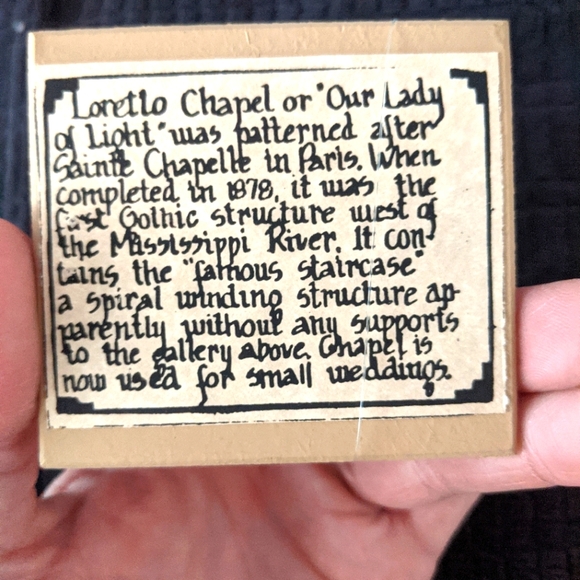 "Loretto Chapel or "Our Lady
of Light" was patterned after
Sainte Chapelle in Paris. When
completed in 1878, it was the
first Gothic structure west of
the Mississippi River. It con-
tains the "famous staircase"
a spiral winding structure ap-
parently without any supports
to the gallery above. Chapel is
now used for small weddings.